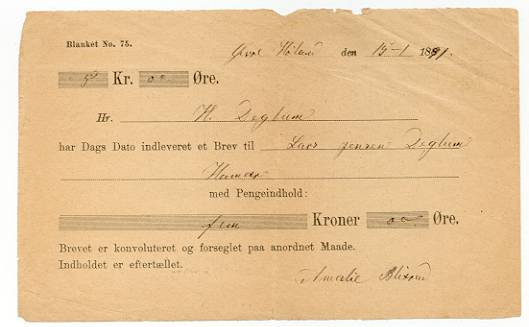 Blanket No. 75.
Øvre Høland den 15-1 1891.
5 Kr. 00 Øre.
Hr. H. Deglum
har Dags Dato indleveret et Brev til Lars Jensen Deglum
Hamar
med Pengeindhold:
fem Kroner 00 Øre.
Brevet er konvoluteret og forseglet paa anordnet Maade.
Indholdet er eftertællet.
Amalie Blixrud